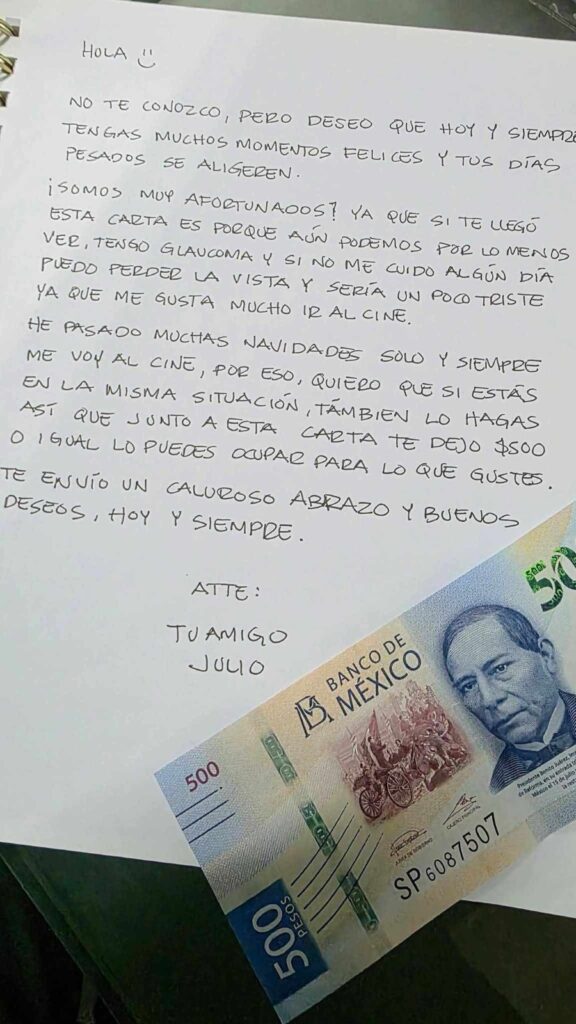 HOLA :)
NO TE CONOZCO, PERO DESEO QUE HOY Y SIEMPRE
TENGAS MUCHOS MOMENTOS FELICES Y TUS DÍAS
PESADOS SE ALIGEREN.
¡SOMOS MUY AFORTUNADOS! YA QUE SI TE LLEGÓ
ESTA CARTA ES PORQUE AÚN PODEMOS POR LO MENOS
VER, TENGO GLAUCOMA Y SI NO ME CUIDO ALGÚN DÍA
PUEDO PERDER LA VISTA Y SERÍA UN POCO TRISTE
YA QUE ME GUSTA MUCHO IR AL CINE.
HE PASADO MUCHAS NAVIDADES SOLO Y SIEMPRE
ME VOY AL CINE, POR ESO, QUIERO QUE SI ESTÁS
EN LA MISMA SITUACIÓN, TÁMBIEN LO HAGAS
ASÍ QUE JUNTO A ESTA CARTA TE DEJO $500
O IGUAL LO PUEDES OCUPAR PARA LO QUE GUSTES.
TE ENVÍO UN CALUROSO ABRAZO Y BUENOS
DESEOS, HOY Y SIEMPRE.
ATTE:
TU AMIGO
JULIO
BANCO DE
MÉXICO
50
500
Presidente Benito Juárez,
de Reforma, en su entrada
México el 15 de
JUNTA DE GOBIERNO
CAJERO PRINCIPAL
SP6087507
500
PESOS